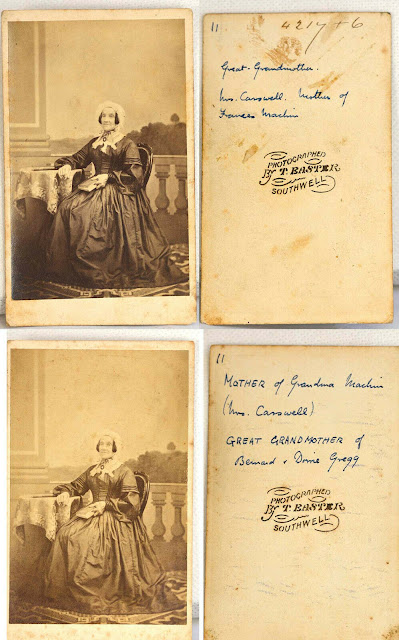 11
4217+6
Great-Grandmother.
Mrs. Carswell. Mother of
Frances Machin
PHOTOGRAPHED
By T. EASTER
SOUTHWELL
11
MOTHER of Grandma Machin
(Mrs. Carswell)
GREAT GRANDMOTHER of
Bernard + Gregg
PHOTOGRAPHED
By T. EASTER
SOUTHWELL